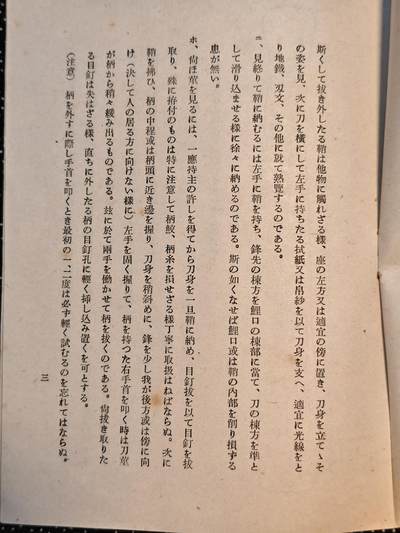 斯くして拔き外したる鞘は他物に觸れざる樣、座の左方又は適宜の傍に置き、刀身を立てゝそ
の姿を見、次に刀を橫にして左手に持ちたる拭紙又は帛紗を以て刀身を支へ、適宜に光線をと
り地鐵、刄文、その他に就て熟覽するのである。
ニ、見終りて鞘に納むるには左手に鞘を持ち、鋒先の棟方を鯉口の棟部に當て、刀の棟方を準と
して滑り込ませる樣に徐々に納めるのである。斯の如くなせば鯉口或は鞘の內部を削り損する
患が無い。
ホ、尙ほ莖を見るには、一應持主の許しを得てから刀身を一旦鞘に納め、目釘拔を以て目釘を拔
取り、殊に拵付のものは特に注意して柄鮫、柄糸を損せざる樣丁寧に取扱はねばならぬ。次に
鞘を拂ひ、柄の中程或は柄頭に近き邊を握り、刀身を稍斜めに、鋒を少し我が後方或は傍に向
け（決して人の居る方に向けない樣に）左手を固く握りて、柄を持つた右手首を叩く時は刀莖
が柄から稍々緩み出るものである。玆に於て兩手を働かせて柄を拔くのである。尙拔き取りた
る目釘は失はざる樣、直ちに外したる柄の目釘孔に輕く挿し込み置くを可とする。
（注意）　柄を外すに際し手首を叩くとき最初の一、二度は必ず輕く試むるのを忘れてはならぬ。
三